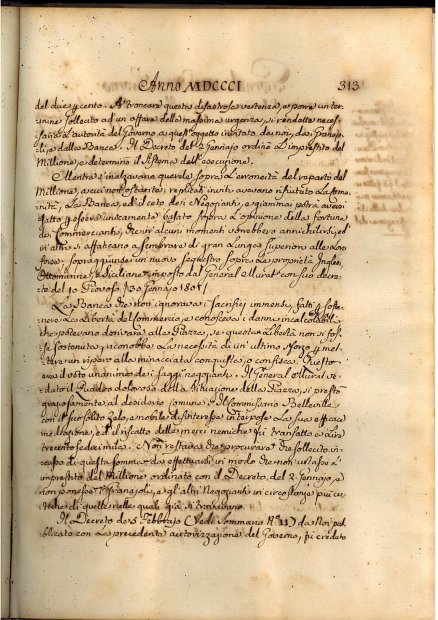 Anno MDCCCI 313
del due p cento. A troncare questa disastrosa vertenza, e porre un ter-
mine sollecito ad un affare della massima urgenza, si rendette neces-
saria l'autorità del Governo a quest'oggetto invitato da noi, dai Granajo-
li, e dalla Banca. Il Decreto del 2 Gennajo ordinò l'imprestito del
Millione, e determinò il sistema dell'esecuzione.
Mentre s'inalzavano querele sopra l'erroneità del reparto del
Millione, a cui non ostanti i replicati inviti avevano rifiutato la
La Banca, ed il ceto dei Negozianti, e giammai potrà aver
esatto p essere unicamente basato sopra l'opinione delle fortune
dei Commercianti, che in alcuni momenti vorrebbero annichilirsi, ed
in altri si affaticano a sembrare di gran lunga superiori alle loro
forze: sopraggiunse un nuovo sequestro sopra le proprietà Inglesi,
Ottomanne, e Siciliane imposto dal General Murat con suo decre-
to del 10 Piovoso (30 Gennajo 1801)
La Banca che non ignorava i sacrifizj immensi, fatti p soste-
nere la libertà del Commercio, e conosceva i danni incalcolabili
che potevano derivare alla Piazza, se questa libertà non si fos-
se sostenuta, riconobbe la necessità di un'ultimo sforzo p met-
tere un riparo alla minacciata conquista, o confisca. Questo
era il voto unanime dei saggi negozianti. Il General Murat ve-
duto il quadro doloroso della situazione della Piazza, si prestò
graziosamente al desiderio comune. Il Commissario Belleville
con il suo solito zelo, e nobile disinteresse interpose la sua efficace
mediazione, ed il riscatto delle merci nemiche fù transatto a Lire
trecento sedici mila. Non restava che procurare che sollecito in-
cesso di questa somma da effettuarsi in modo che non urtasse l'
imprestito del Millione ordinato con il Decreto del 2 Gennajo, e
non ponesse i Granajoli, e gl'altri Negozianti in circostanze più cri-
tiche di quelle nelle quali già si trovavano.
Il Decreto de 5 Febbrajo (Vedi Sommario N.º 11) da Noi pub-
blicato con la precedente autorizzazione del Governo, fù creduto